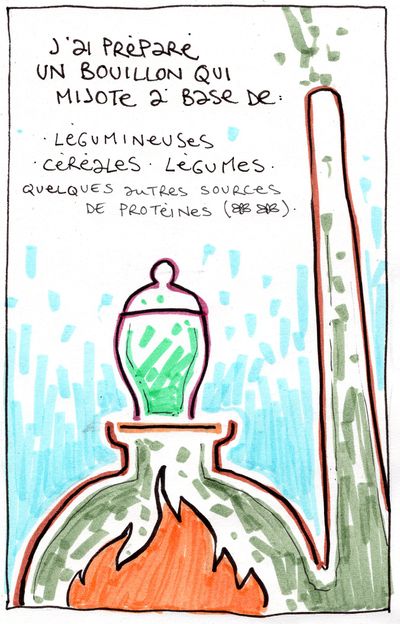 J'ai préparé
un bouillon qui
mijote à base de:
· Légumineuses
· céréales · légumes ·
quelques autres sources
de protéines ( ).